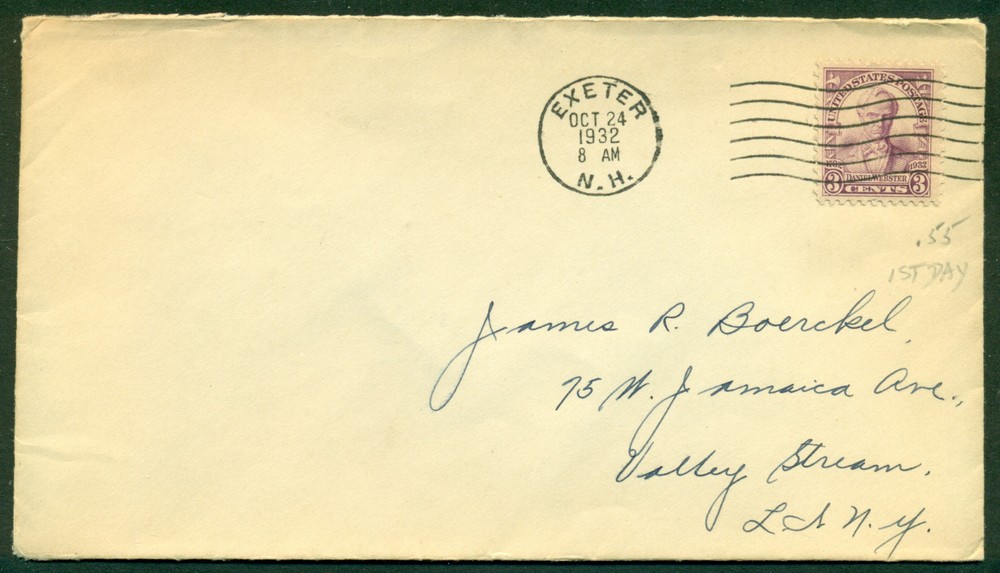 EXETER
OCT 24
1932
8 AM
N.H.
UNITED STATES POSTAGE
1932
DANIEL WEBSTER
3 CENTS 3
.55
1ST DAY
James R. Boerckel
75 W. Jamaica Ave.,
Valley Stream.
L.I N.Y.